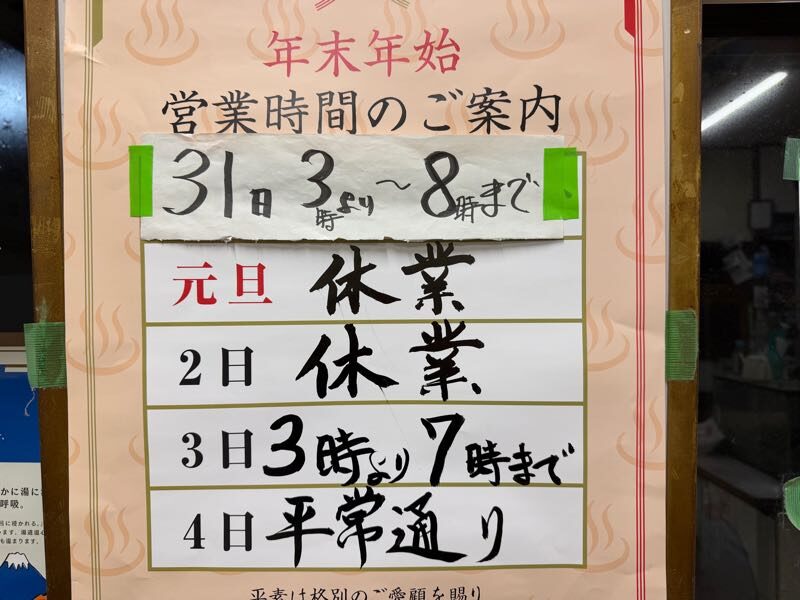 年末年始
営業時間のご案内
31日 3時より〜8時まで
元旦 休業
2日 休業
3日 3時より 7時まで
4日 平常通り
平素は格別のご愛顧を賜り
かに湯に
呼吸。